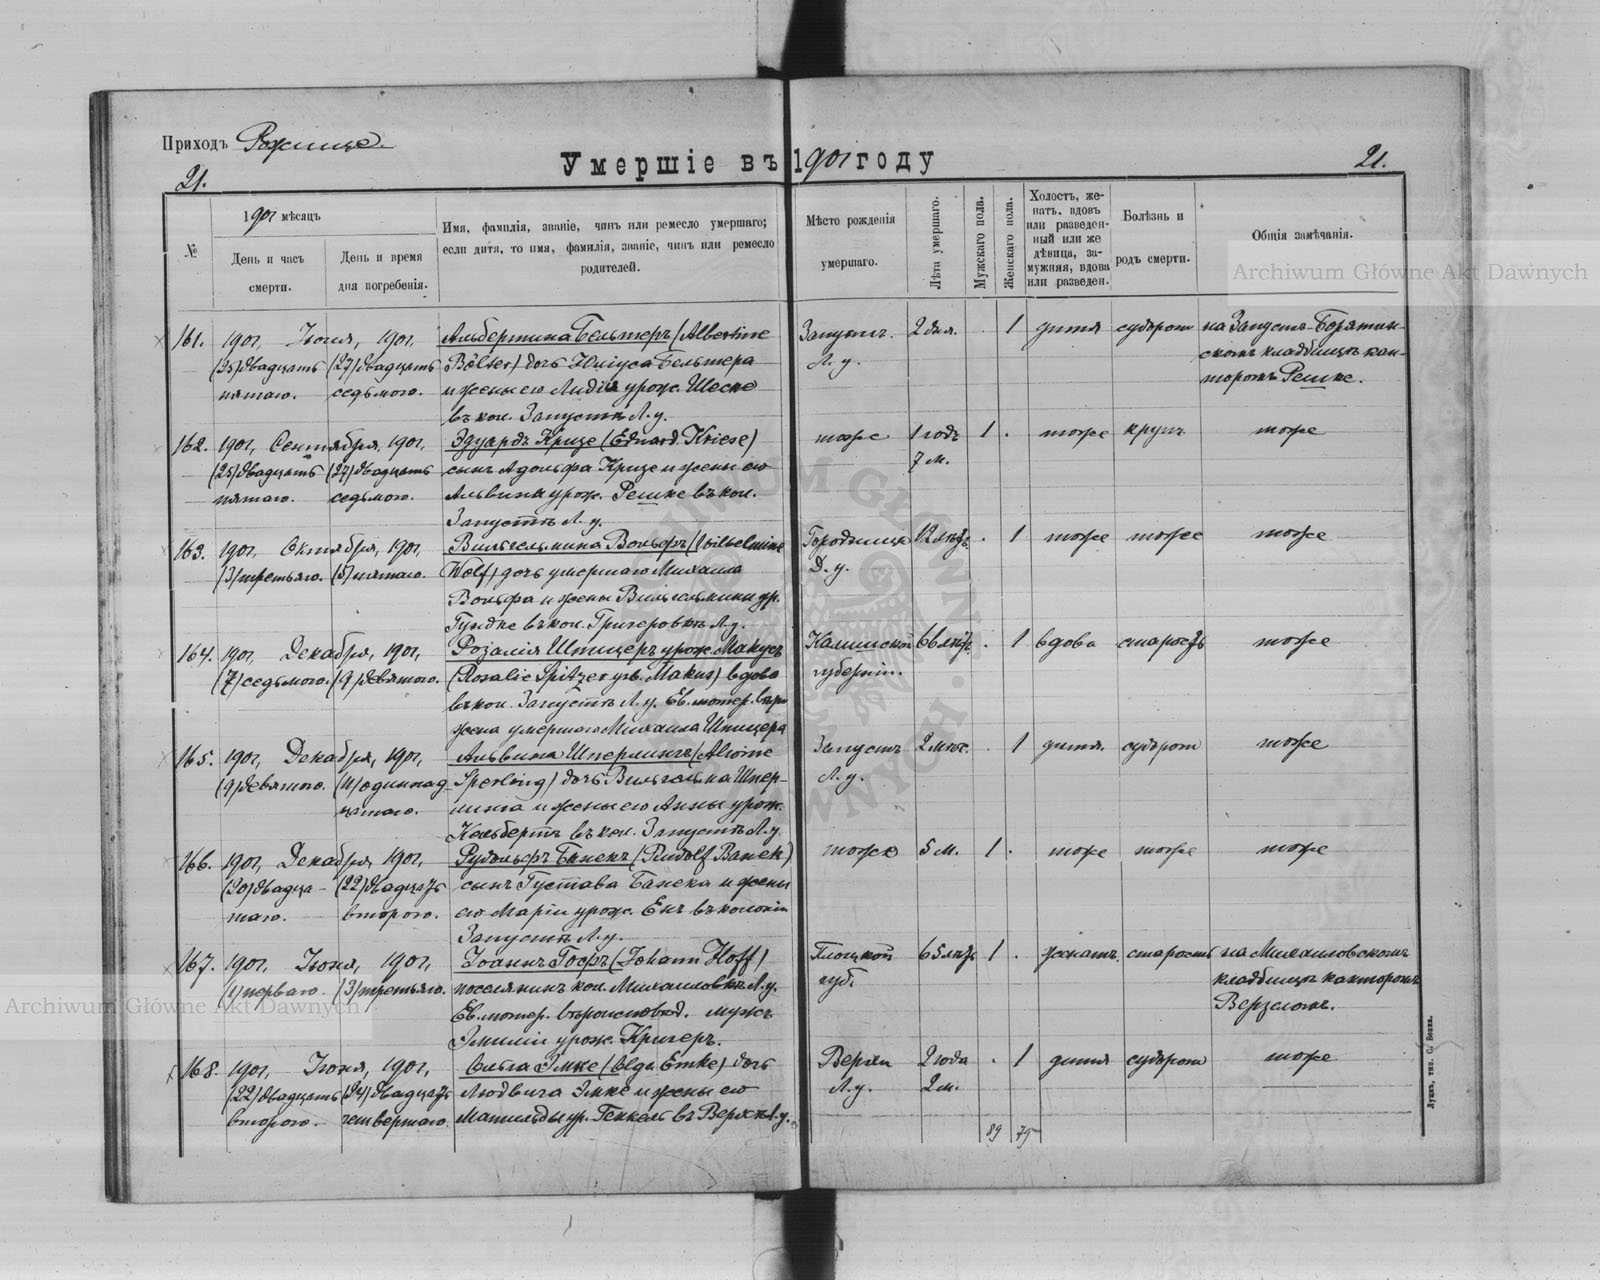 Приходъ Рожище
Умершіе въ 1901 году
21.
21.
№
1901 мѣсяцъ
День и часъ смерти.
День и время дня погребенія.
Имя, фамилія, званіе, чинъ или ремесло умершаго;
если дитя, то имя, фамилія, званіе, чинъ или ремесло
родителей.
Мѣсто рожденія
умершаго.
Лѣта умершаго.
Мужскаго пола.
Женскаго пола.
Холостъ, же-
натъ, вдовъ
или разведен-
ный или же
дѣвица, за-
мужняя, вдова
или разведен.
Болѣзнь и
родъ смерти.
Общія замѣчанія.
161. 1901, Іюня, 1901, Альбертина Бельтеръ (Albertine Запустъ 2 дня. . 1 дитя судорог на Запустъ-Борятин-
(25) двадцать (27) двадцать Bölter) дочь Юліуса Бельтера Л. у. скомъ кладбищѣ кан-
пятаго. седьмого. и жены его Лидіи урож. Шеске торомъ Решке.
въ кол. Запустъ Л. у.
162. 1901, Сентября, 1901, Эдуардъ Кризе (Eduard Kriese) тоже 1 годъ 1 . тоже крупъ тоже
(25) двадцать (27) двадцать сынъ Адольфа Кризе и жены его 7 м.
пятаго. седьмого. Альвины урож. Решке въ кол.
Запустъ Л. у.
163. 1901, Октября, 1901, Вильгельмина Вольфъ (Wilhelmine Городище 12 лѣтъ . 1 тоже тоже тоже
(3) третьяго. (5) пятаго. Wolf) дочь умершаго Михаила Д. у.
Вольфа и жены Вильгельмины ур.
Гундке въ кол. Григеровкѣ Л. у.
164. 1901, Декабря, 1901, Розалія Шпицеръ урож. Макусъ Калишской 66 лѣтъ . 1 вдова старость тоже
(7) седьмого. (9) девятого. (Rosalie Spitzer geb. Makus) вдова губерніи.
въ кол. Запустъ Л. у. Ев. лютер. вѣры
жена умершаго Михаила Шпицера
165. 1901, Декабря, 1901, Альвина Шперлингъ (Alwine Запустъ 2 мѣс. . 1 дитя. судорог тоже
(9) девятого. (11) одиннад- Sperling) дочь Вильгельма Шпер- Л. у.
цатаго. линга и жены его Анны урож.
Кельбертъ въ кол. Запустъ Л. у.
166. 1901, Декабря 1901, Рудольфъ Банекъ (Rudolf Banek) тоже 5 м. 1 . тоже тоже тоже
(20) двадца- (22) двадцать сынъ Густава Банека и жены
таго. второго. его Маріи урож. Енъ въ колоніи
Запустъ Л. у.
167. 1901, Іюня, 1901, Іоаннъ Гофъ (Johann Hoff) Плоцкой 65 лѣтъ 1 . женатъ. старость на Михайловскомъ
(1) перваго. (3) третьяго. поселянинъ кол. Михаиловкѣ Л. у. губ. кладбищѣ канторомъ
Ев. лютер. вѣроисповѣд. мужъ Верзеломъ.
Эмиліи урож. Кригеръ.
168. 1901, Іюня, 1901, Ольга Эмке (Olga Emke) дочь Верхи 2 года . 1 дитя судорог тоже
(22) двадцать (24) двадцать Людвига Эмке и жены его Л. у. 2 м.
второго. четвертаго. Матильды ур. Генкель въ Верхи Л. у.
89 75
Луцкъ, тип. С. Бонка.
Archiwum Główne Akt Dawnych
Archiwum Główne Akt Dawnych
ARCHIWUM GŁÓWNE AKT DAWNYCH